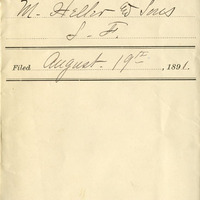 M. Heller & Sons
S. F.
Filed August. 19th, 1891.